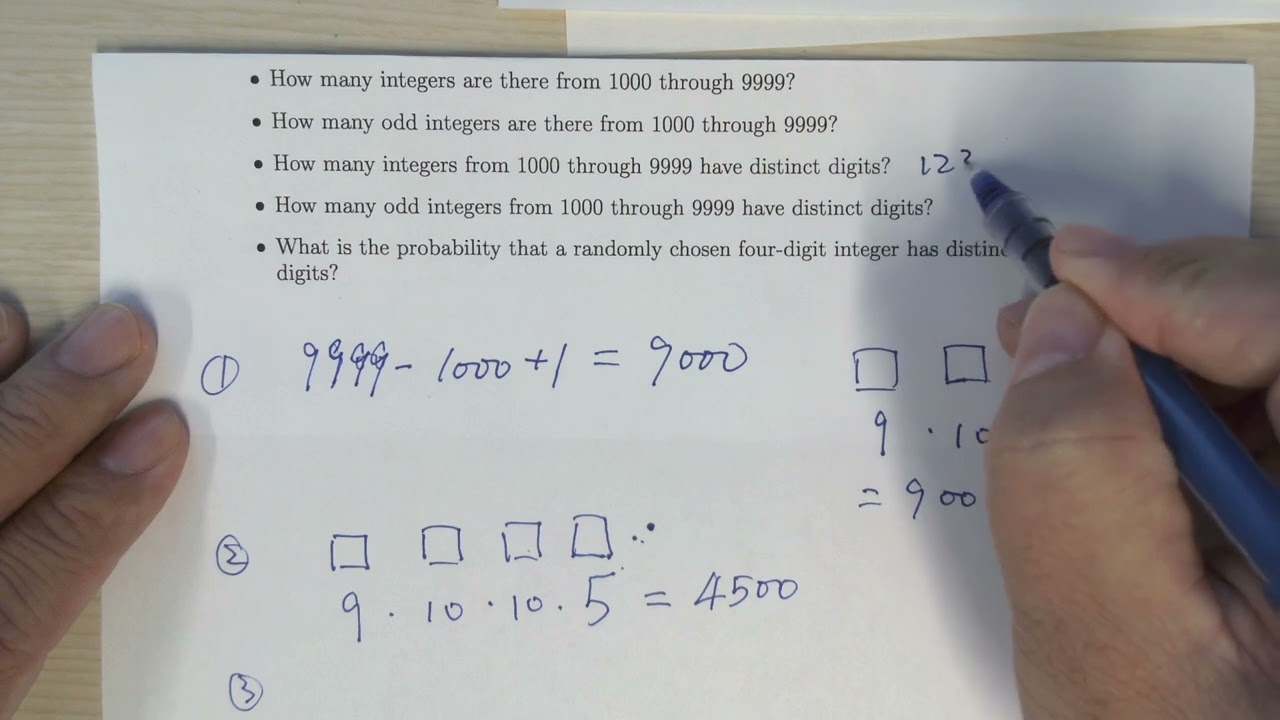 • How many integers are there from 1000 through 9999?
• How many odd integers are there from 1000 through 9999?
• How many integers from 1000 through 9999 have distinct digits? 123
• How many odd integers from 1000 through 9999 have distinct digits?
• What is the probability that a randomly chosen four-digit integer has distinc
digits?
① 9999 - 1000 + 1 = 9000
9 · 10
= 900
②
9 · 10 · 10 · 5 = 4500
③